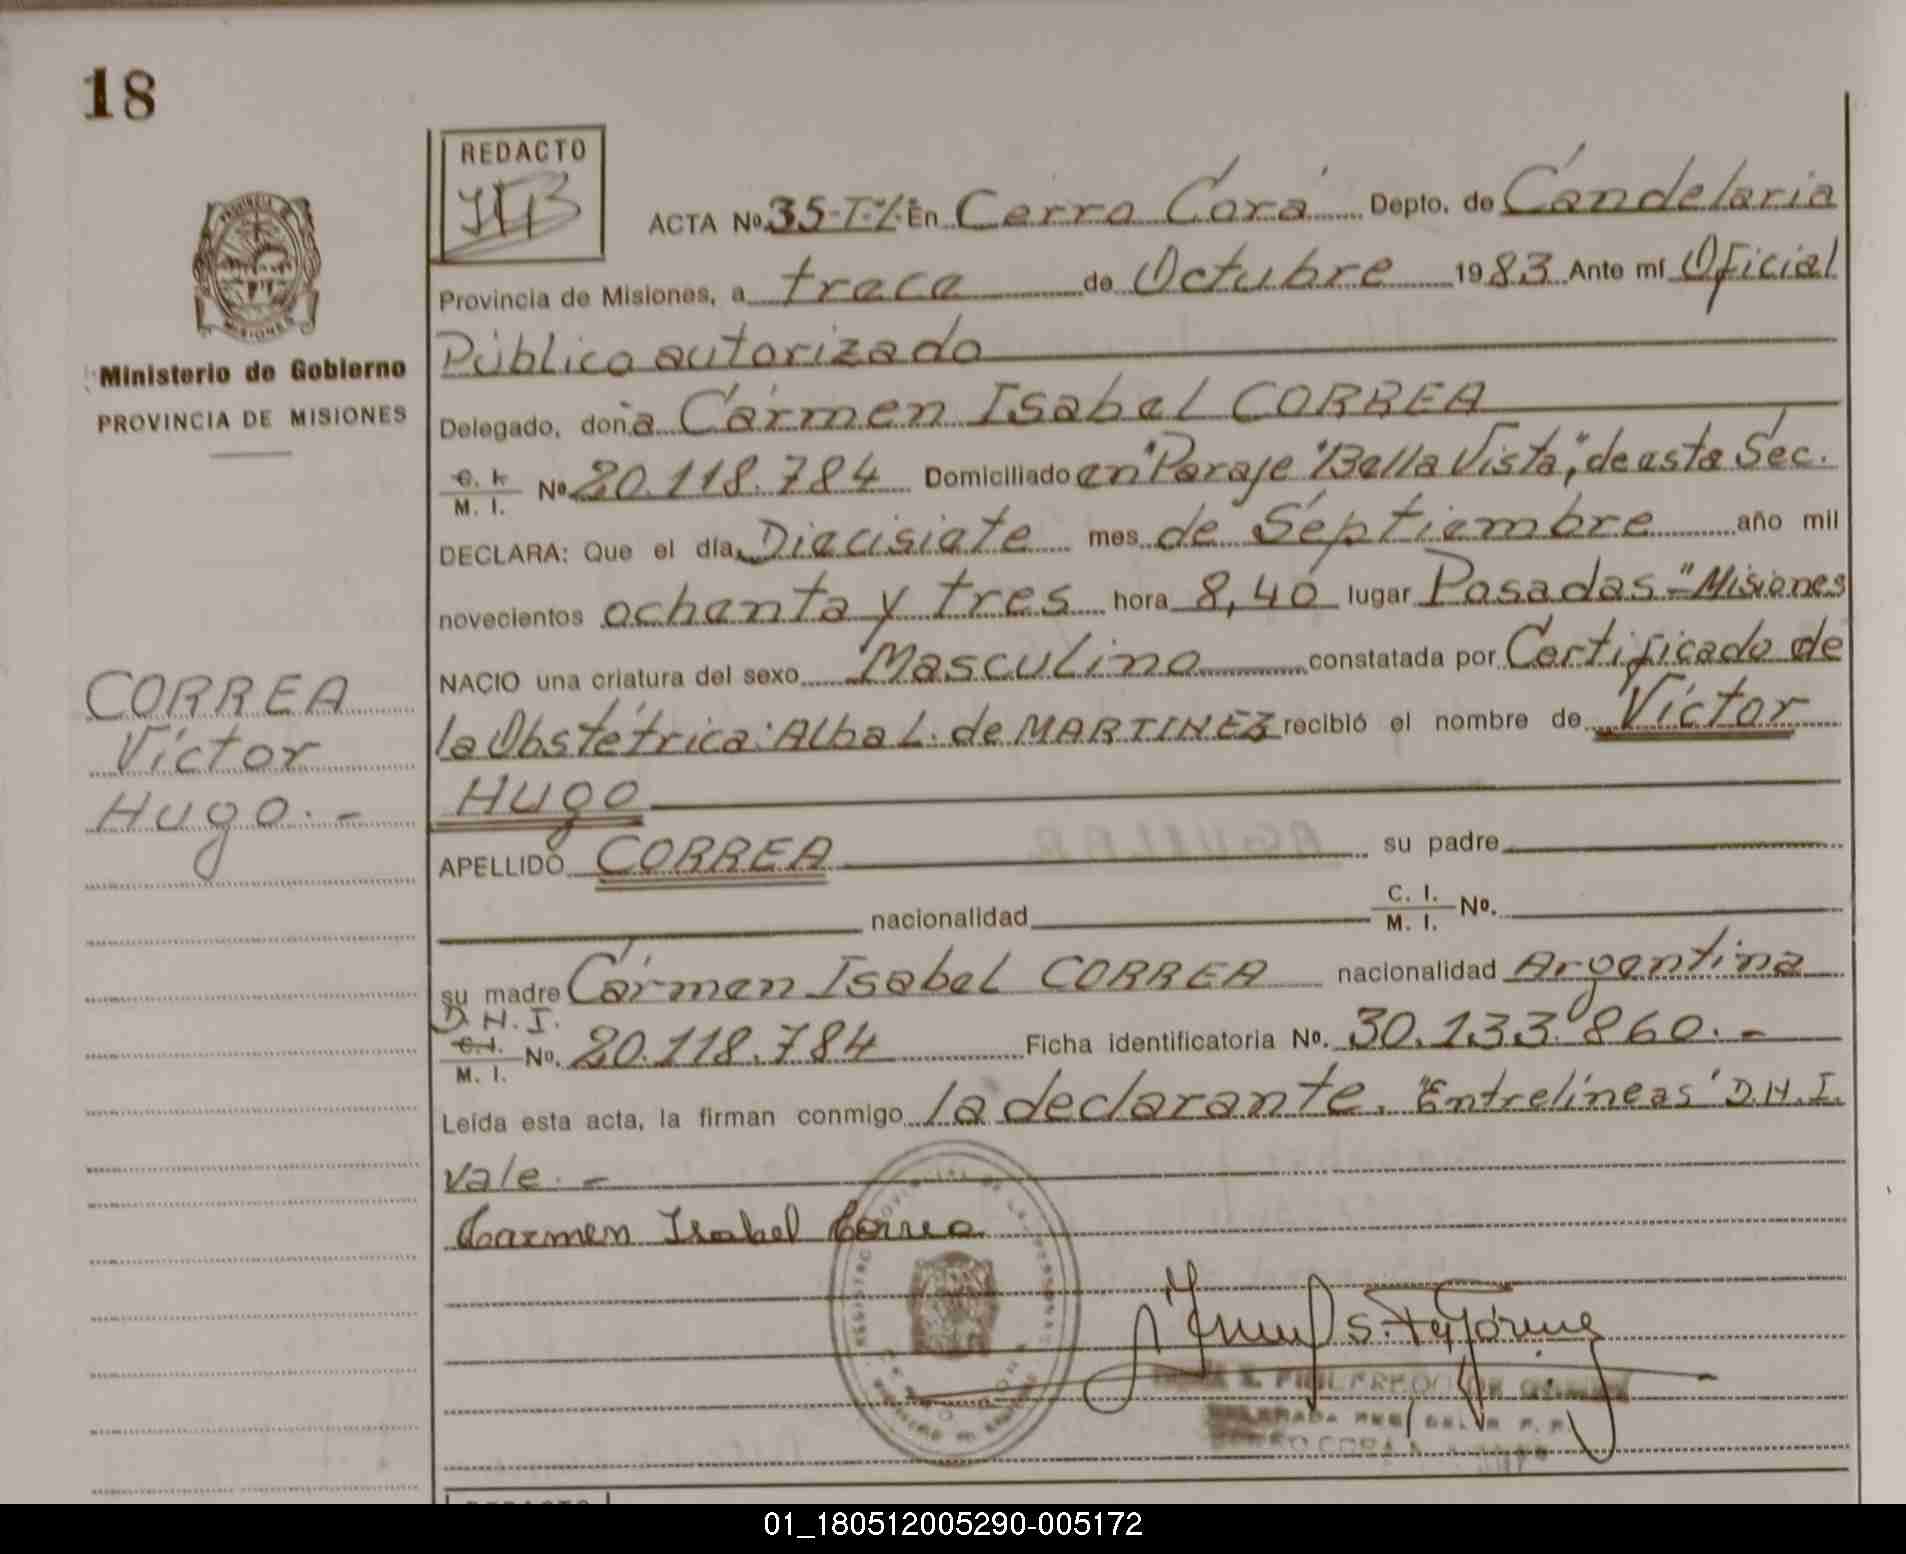 18
REDACTO
ACTA Nº 35-T-1/ En Cerro Corá Depto. de Candelaria
Provincia de Misiones, a trece de Octubre 1983 Ante mí Oficial
Ministerio de Gobierno
PROVINCIA DE MISIONES
Público autorizado
Delegado, doña Cármen Isabel CORREA
C. I. M. I. Nº 20.118.784 Domiciliado en "Paraje "Bella Vista", de esta Séc.
DECLARA: Que el día Diecisiete mes de Séptiembre año mil
novecientos ochenta y tres hora 8,40 lugar Posadas-"Misiones
NACIO una criatura del sexo Masculino constatada por Certificado de
la Obstétrica: Alba L. de MARTINEZ recibió el nombre de Víctor
Hugo
CORREA
Víctor
Hugo.-
APELLIDO CORREA su padre
nacionalidad C. I. M. I. Nº.
su madre Cármen Isabel CORREA nacionalidad Argentina
D.N.I.
C. I. M. I. Nº. 20.118.784 Ficha identificatoria Nº. 30.133.860.-
Leída esta acta, la firman conmigo la declarante. "Entrelíneas" D.N.I.
vale.-
Carmen Isabel Correa
REDACTO
01_180512005290-005172